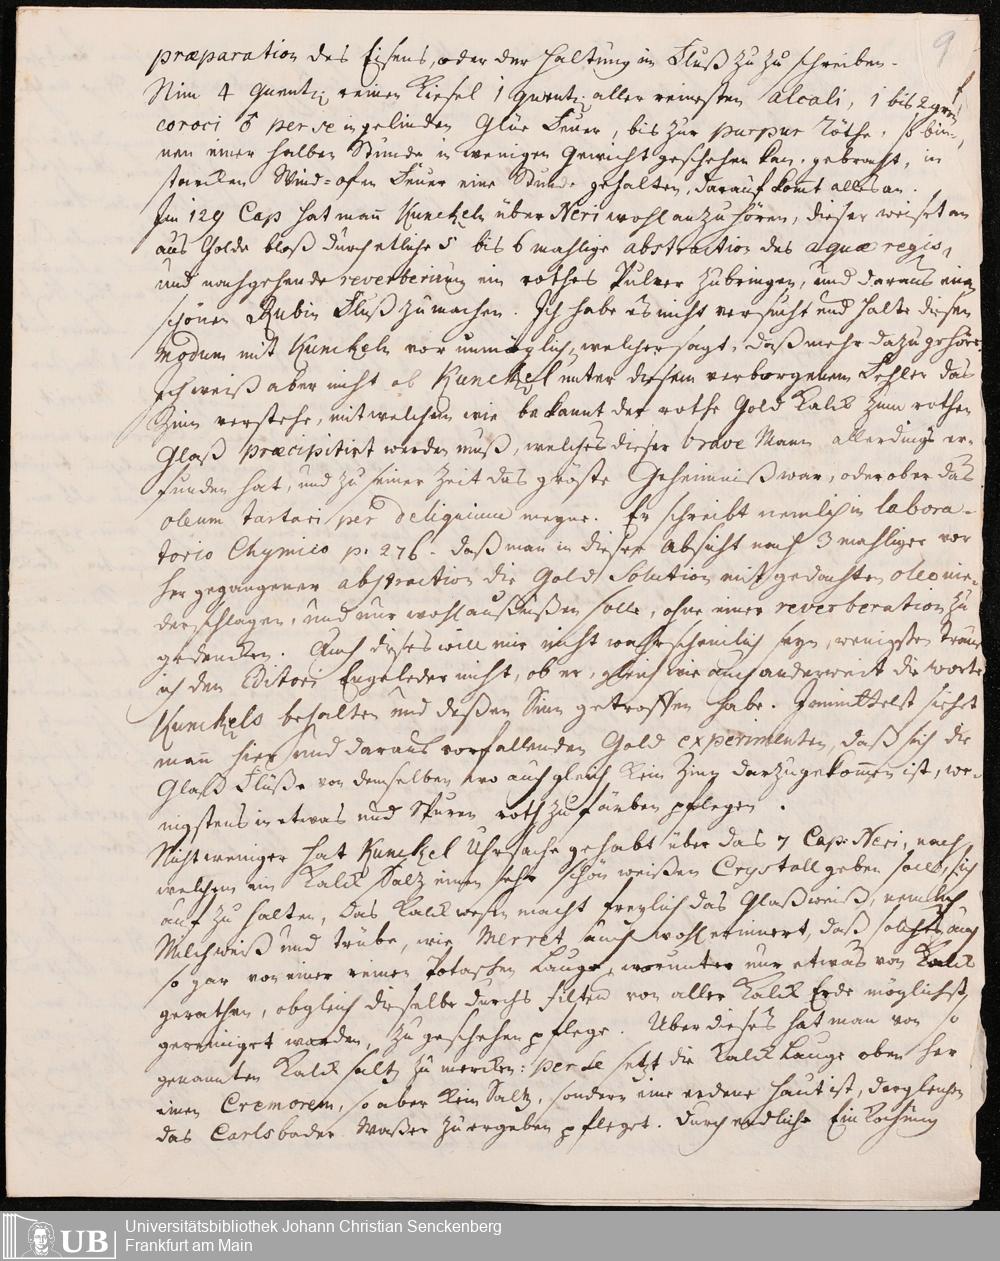 9
præparation des Eisens, oder der Haltung im Fluß zu zu schreiben.
Nim 4 quentl. reinen Kiesel 1 quentl. aller reinesten alcali, 1 bis 2 gran
croci ♂ per se in gelinden Glüe Feuer, bis zur purpur Röthe, so bin-
nen einer halben Stunde in wenigen Gewicht geschehen kan, gebracht, in
starcken Wind-ofen Feuer eine Stunde gehalten, darauf komt alles an.
Im 129 Cap hat man Kunckeln über Neri wohl anzuhören, dieser weiset an
aus Golde bloß durch etliche 5 bis 6 mahlige abstraction des aquæ regis,
und nachgehende reverberirung ein rothes Pulver zubringen, und daraus einen
schönen Rubin Fluß zumachen. Ich habe es nicht versucht und halte diesen
Modum mit Kunckeln vor unmöglich, welcher sagt, daß mehr dazu gehöre
Ich weiß aber nicht ob Kunckel unter diesem verborgenem Fehler das
Zinn verstehe, mit welchem wie bekannt der rothe Gold Kalck zum rothen
Glaß præcipitirt werden muß, welches dieser brave Mann allerdings er-
funden hat, und zu seiner Zeit das gröste Geheimniß war, oder ober das
oleum tartari per deliquium meyne. Er schreibt nemlich in labora-
torio Chymico p. 276. daß man in dieser Absicht nach 3 mahliger vor
her gegangener abstraction die Gold Solution mit gedachten oleo nie-
derschlagen, und nur wohl außsüßen solle, ohne einer reverberation zu
gedencken. Auch dieses will mir nicht wahrscheinlich seyn, wenigsten traue
ich den Editori Engeleder nicht, ob er, gleich wie auch anderweit die worte
Kunckels behalten und deßen Sinn getroffen habe. Immittelst siehet
man hier und daraus vorfallenden Gold experimenten, daß sich die
Glaß Flüße von demselben wo auch gleich kein Zinn darzugekommen ist, we-
nigstens in etwas und Spuren roth zu färben pflegen.
Nicht weniger hat Kunckel Uhrsache gehabt über das 7 Cap: Neri, nach
welchem ein Kalck Saltz einen sehr schön weißen Crystall geben soll, sich
auf zu halten, das Kalckwesen macht freylich das Glaß weiß, nemlich
Milchweiß und trübe, wie Merret auch wohl erinnert, daß solches auch
so gar von einer reinen Potaschen Lauge, worunter nur etwas von Kalck
gerathen, obgleich dieselbe durchs filtrum von aller Kalck Erde möglichst
gereiniget worden, zu geschehen pflege. Uber dieses hat man von so
genannten Kalcksaltz zu mercken: per se setzt die Kalck Lauge oben her
einen Cremorem, so aber kein Saltz, sondern eine erdene Haut ist, dergleichen
das Carlsbader Waßer zu ergeben pfleget. durch endliche Einkochung
Universitätsbibliothek Johann Christian Senckenberg
Frankfurt am Main
UB